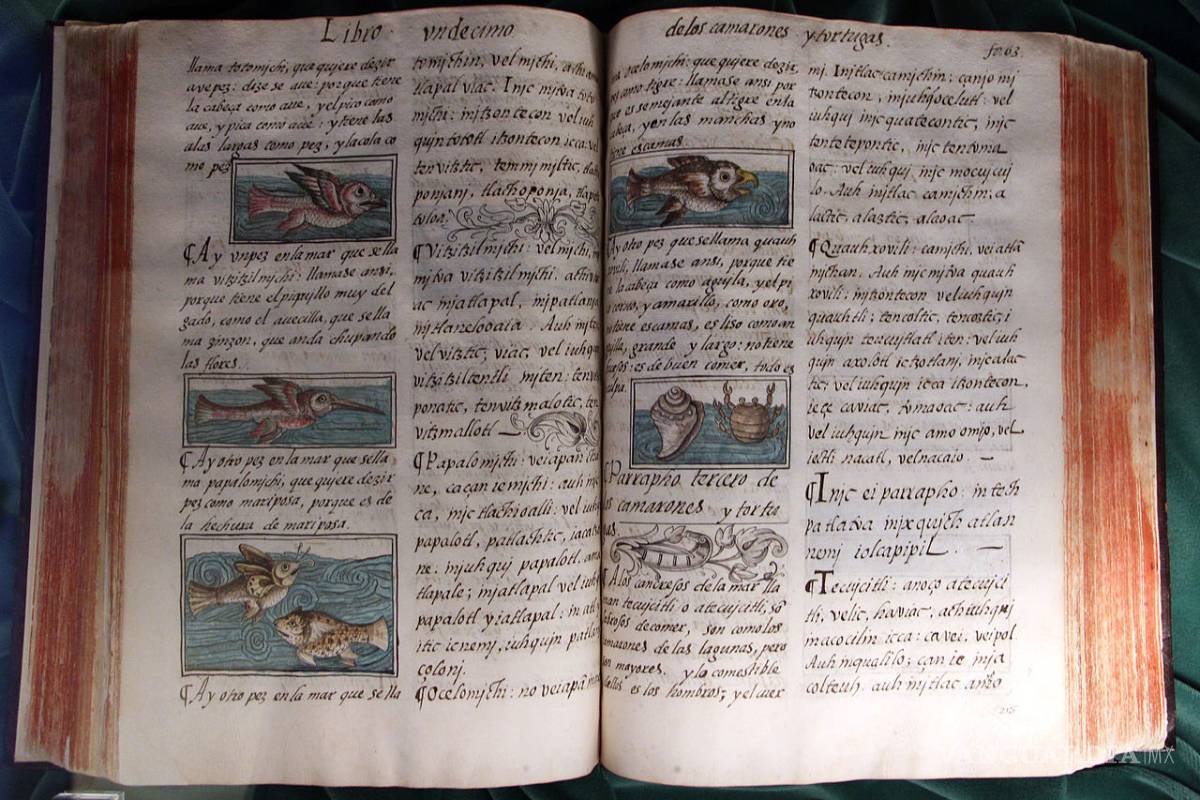 Libro undecimo
llama totomichi, que quiere dezir
ave pez: dize se ave: porque tiene
la cabeça como ave, y el pico como
ave, y pica como ave: y tiene las
alas largas como pez, y la cola co
mo pez
¶ Ay un pez en la mar que se lla
ma vitzitzilmichi: llamase ansi,
porque tiene el piquillo muy del
gado, como el avecilla, que se lla
ma zinzon, que anda chupando
las flores.
¶ Ay otro pez en la mar que se lla
ma papalomichi, que quiere dezir
pez como mariposa, porque es de
la hechura de mariposa.
¶ Ay otro pez en la mar que se lla
tomichin, vel michi,
tlapal vlac. Inic mitva toto
michi: initzontecon vel iuh
quin tototl itzontecon icca: vel
tenvitztic,
ponjanj, tlachoponja,
tvloa.
¶ Vitzitzilmichi: vel michi,
mitva vitzitzilmichi,
ac injatlapal, inpatlanja
injtlaneloaia. Auh inten
velvitztic, viac, vel iuhq
vitzitziltentli inten:
ponatic, tenvitzmalotic, ten
vitzmallotl —
¶ Papalomichi:
ne, ca çan ie michi: auh inic
ca, inic tlachioalli: vel iuh
papalotl, patlachtic,
ne: injuhquj papalotl.
tlapale; injatlapal vel iuh
papalotl yiatlapal:
itic ienemj, iuhquin patlan
colonj.
¶ Ocelomichi: no veiapan
de los camarones y tortugas. fo. 63
ocelomichi: que quiere dezir,
pez como tigre: llamase ansi por
que es semejante al tigre en la
cabeça, y en las manchas y no
tiene escamas.
Ay otro pez que se llama quauh
xovili, llamase ansi, porque tie
ne la cabeça como aguila, y el pi
co corvo, y amarillo, como oro,
no tiene escamas, es liso como an
guilla, grande y largo: no tiene
huesos: es de buen comer, todo es
pulpa.
¶ Parrapho tercero de
los camarones y tortu
gas.
¶ A los cangrejos de la mar lla
man tecujcitli o atecujcitli, son
sabrosos de comer, son como los
camarones de las lagunas, pero
son mayores, y lo comestible
dellos es los hombros; y el cuer
mi. Initlac camichin: canjo ini
tzontecon, injuhqocelutl: vel
iuhqui inic quatecontic, inic
tentotepontic, inic tentvma
oac: vel iuhqui, inic mocujcuj
lo. Auh initlac camichin; a
lactic, alaztic, alaoac.
¶ Quauhxovili: camichi, vei atla
michan. Auh inic mitva quauh
xovili: initzontecon vel iuhquin
quauhtli; tencoltic, tencoztic; i
uhqujn teocuitlatl iten: vel iuh
quin axolotl ic itzotlanj, inic alac
tic; vel iuhquin icca itzontecon,
icçe caviac, tomaoac: auh
vel iuhquin inic amo omio, vel
iectli nacatl, vel nacaio. —
¶ Inic ei parrapho: in tech
patlatva in ixquich atlan
nemj iolcapipil. —
¶ Tecujcitli: anoço atecujci
tli: velic, haviac, achi iuhquj
macocilin icca: ca vei, veipol.
Auh in qualilo; çan ie inja
colteuh. auh initlac amo
216
VANGUARDIA MX